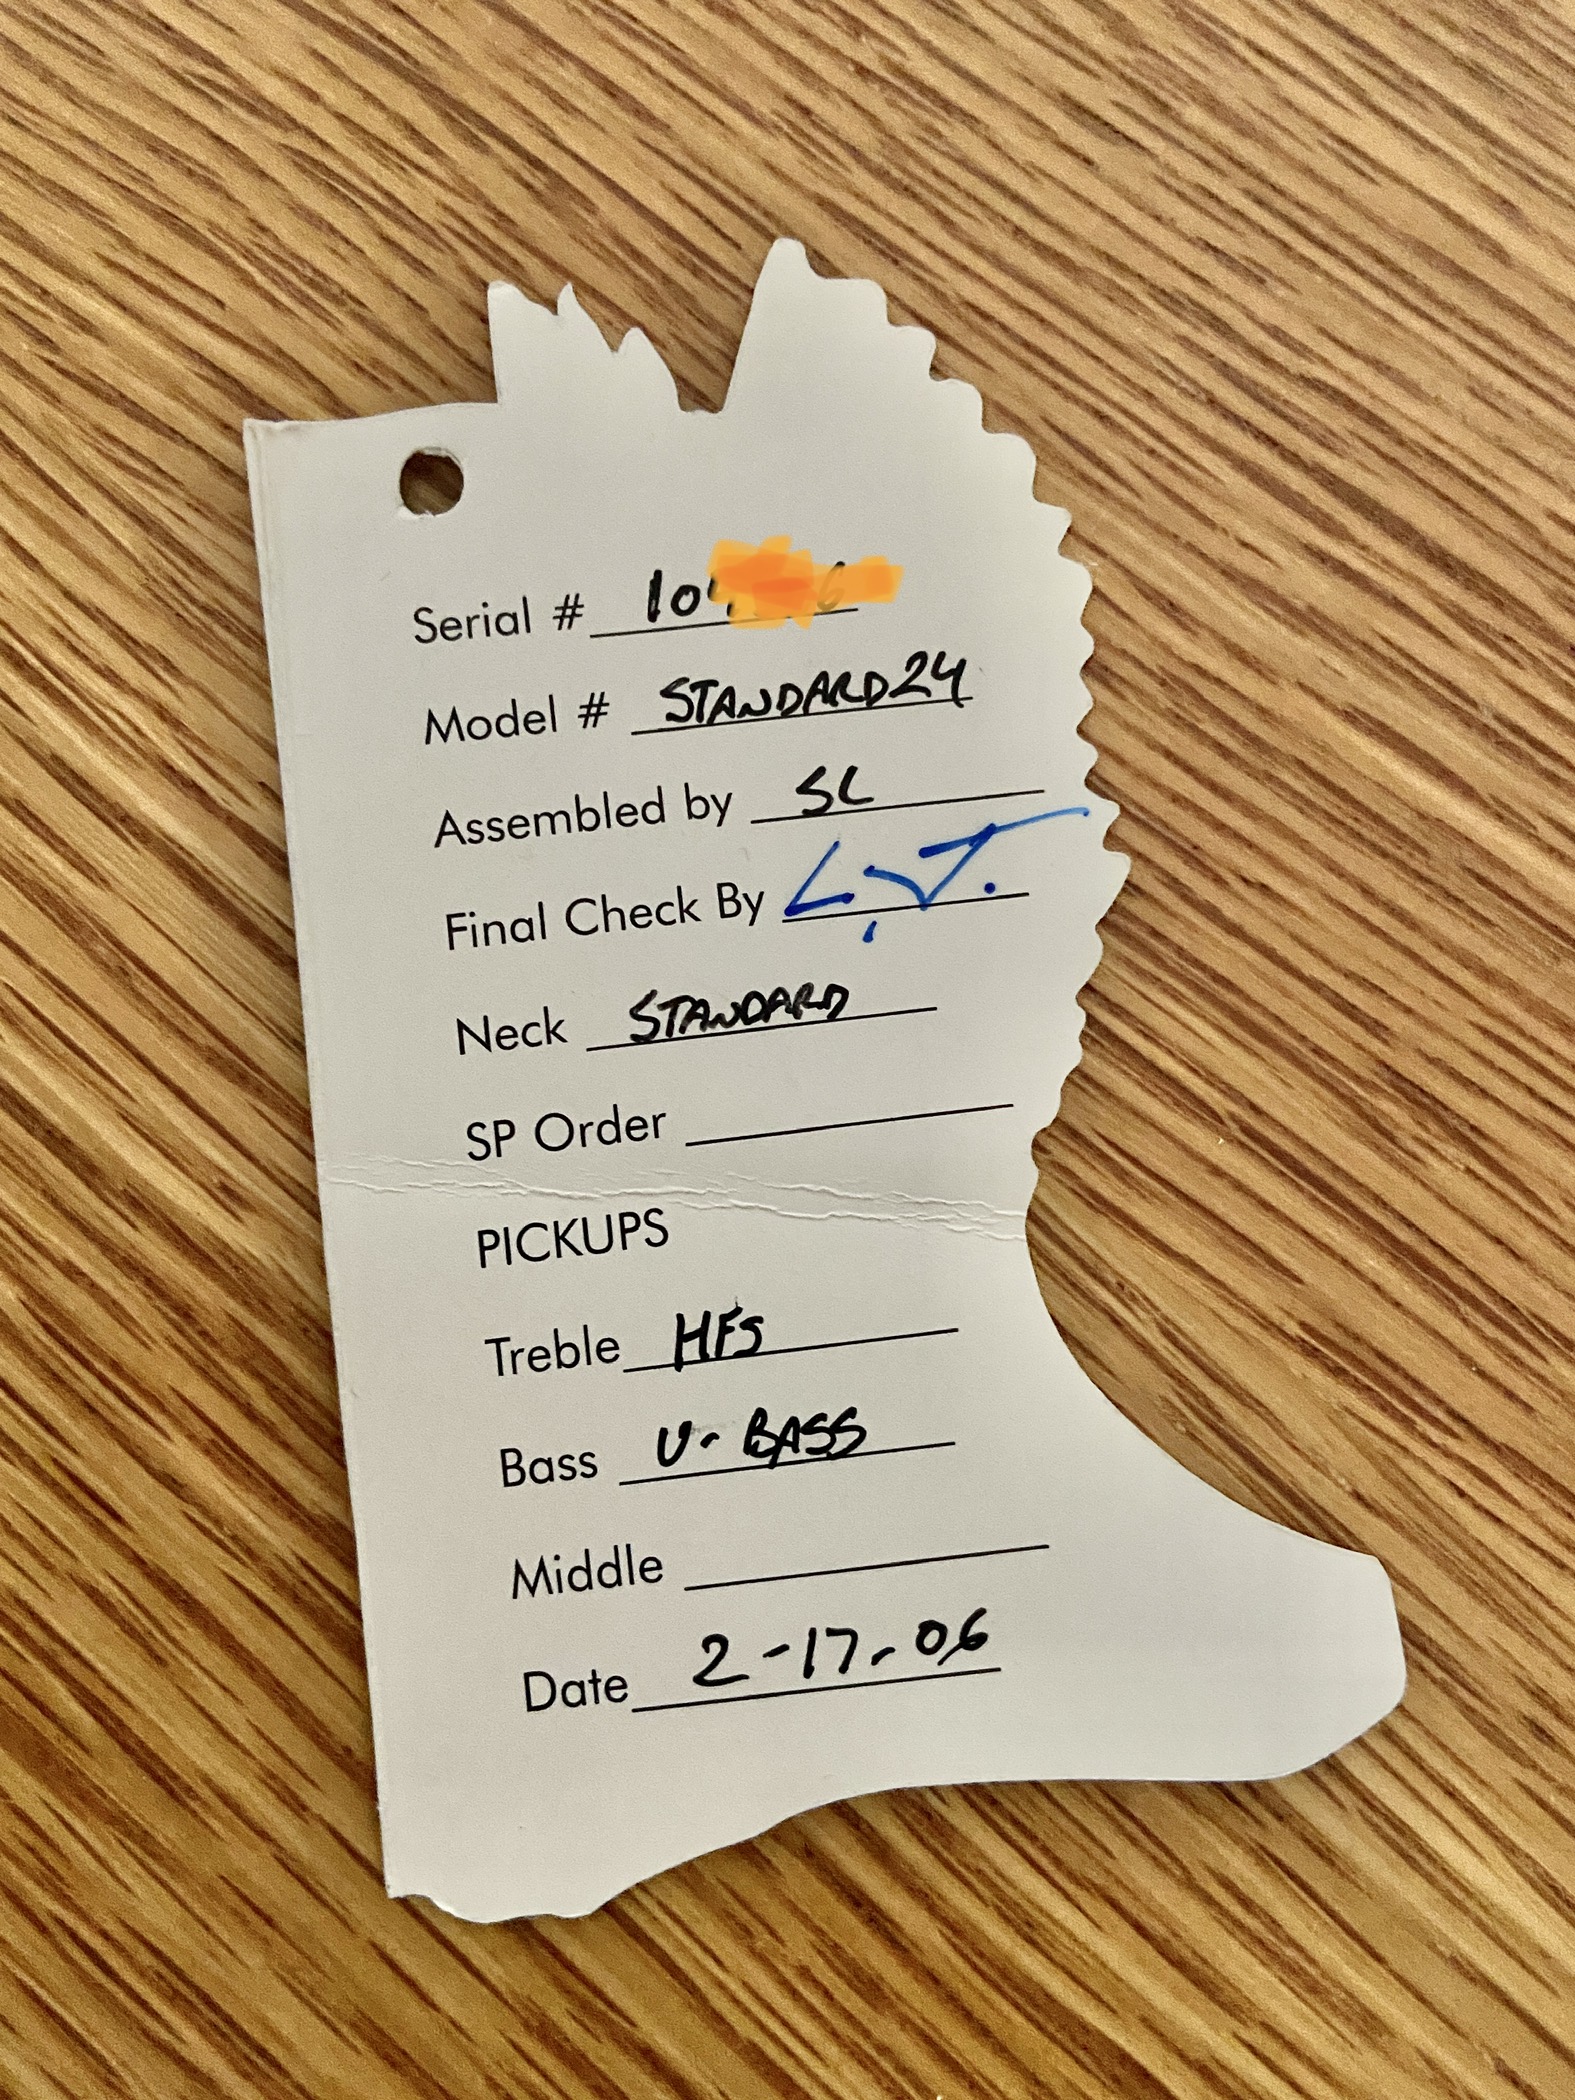 Serial # 10
Model # STANDARD 24
Assembled by SC
Final Check By L.J.
Neck STANDARD
SP Order
PICKUPS
Treble HFS
Bass V-BASS
Middle
Date 2-17-06